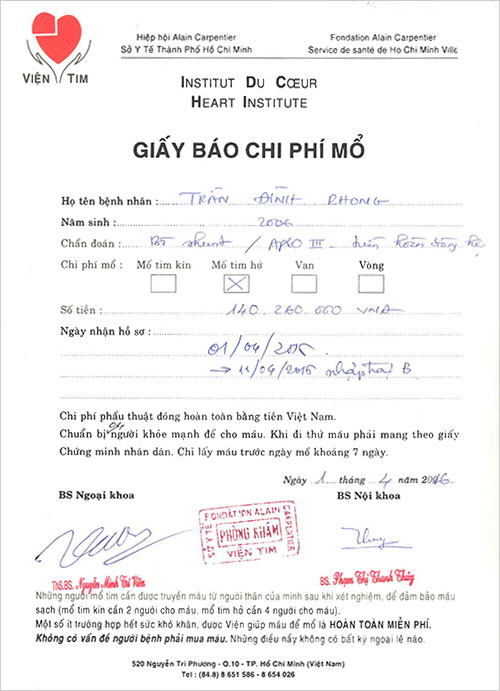 VIỆN TIM
Hiệp hội Alain Carpentier
Sở Y Tế Thành Phố Hồ Chí Minh
Fondation Alain Carpentier
Service de santé de Ho Chi Minh Ville
INSTITUT DU CŒUR
HEART INSTITUTE
GIẤY BÁO CHI PHÍ MỔ
Họ tên bệnh nhân : TRẦN ĐÌNH PHONG
Năm sinh : 2006
Chẩn đoán : shunt / APSO III -
Chi phí mổ : Mổ tim kín Mổ tim hở Van Vòng
Số tiền : 140.260.000 VNĐ
Ngày nhận hồ sơ :
01/04/2015
→ 11/04/2015 nhập trại B
Chi phí phẫu thuật đóng hoàn toàn bằng tiền Việt Nam.
Chuẩn bị 04 người khỏe mạnh để cho máu. Khi đi thử máu phải mang theo giấy
Chứng minh nhân dân. Chỉ lấy máu trước ngày mổ khoảng 7 ngày.
Ngày 1 tháng 4 năm
BS Ngoại khoa
BS Nội khoa
FONDATION ALAIN CARPENTIER
PHÒNG KHÁM
VIỆN TIM
ThS.BS. Nguyễn Minh Trí Viên
BS. Phạm Thị Thanh Thúy
Những người mổ tim cần được truyền máu từ người thân của mình sau khi xét nghiệm, để đảm bảo máu
sạch (mổ tim kín cần 2 người cho máu, mổ tim hở cần 4 người cho máu).
Một số ít trường hợp hết sức khó khăn, được Viện giúp máu để mổ là HOÀN TOÀN MIỄN PHÍ.
Không có vấn đề người bệnh phải mua máu. Những điều nầy không có bất kỳ ngoại lệ nào.
520 Nguyễn Tri Phương - Q.10 - TP. Hồ Chí Minh (Việt Nam)
Tel : (84.8) 8 651 586 - 8 654 026